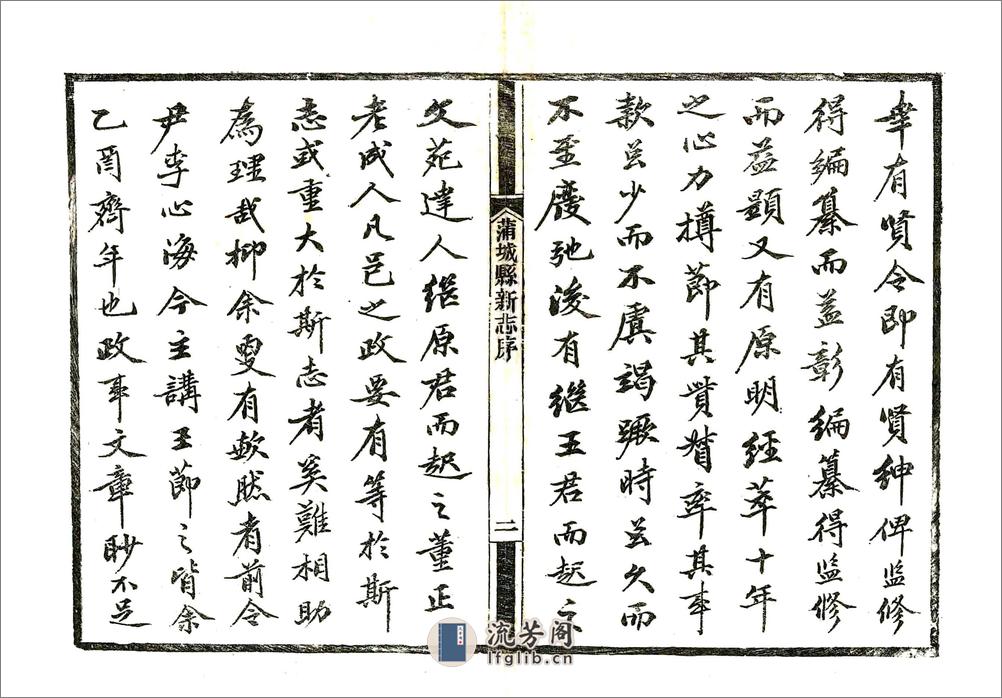 幸有賢令即有賢紳俾監修
得編纂而益彰編纂得監修
而益顯又有原明經萃十年
之心力撙節其貲督率其事
款並少而不虞竭蹶時並久而
不至廢弛後有繼王君而起之
蒲城縣新志序
二
文苑達人繼原君而起之董正
老成人凡邑之政要有等於斯
志或重大於斯志者奚難相助
為理哉抑余更有歉然者前令
尹李心海今主講王節之皆余
乙酉齊年也政事文章眇不足
流芳阁
lfglib.cn